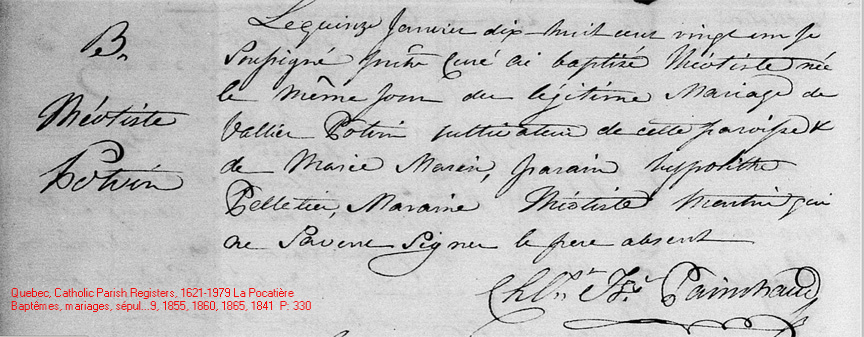 B.
Méotiste
Potvin
Le quinze Janvier dix-huit cent vingt un Je
Soussigné prêtre Curé ai baptizé Méotiste née
le même jour du légitime Mariage de
Vallier Potvin cultivateur de cette paroisse &
de Marie Marin, parain hyppolithe
Pelletier, Maraine Méotiste Martin qui
ne Savent Signer le père absent
Chls. Frs. Painchaud
Quebec, Catholic Parish Registers, 1621-1979 La Pocatière
Baptêmes, mariages, sépul...9, 1855, 1860, 1865, 1841 P: 330